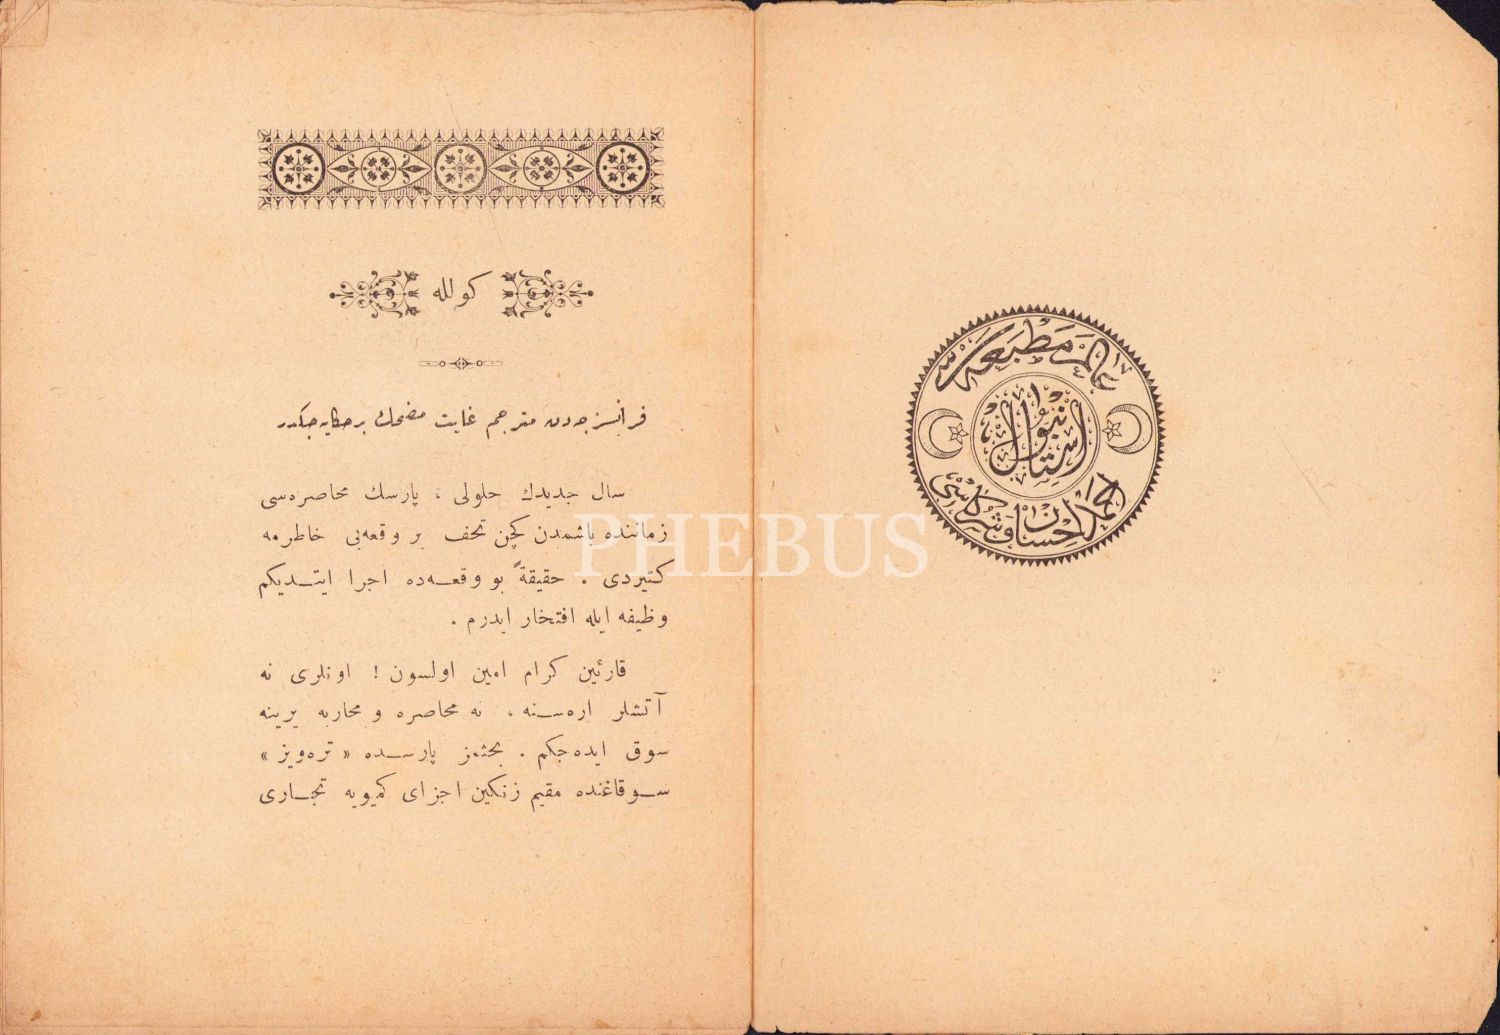 عالم مطبعه‌سی
استانبول
احمد احسان و شركاسی
كولله
فرانسزجه‌دن مترجم غایت مضحك بر حكایه‌جكدر
سال جدیدك حلولی ، پارسك محاصره‌سی
زماننده باشمدن كچن تحف بر وقعه‌یی خاطرمه
كتیردی . حقیقةً بو وقعه‌ده اجرا ایتدیكم
وظیفه ایله افتخار ایدرم .
قارئین كرام امین اولسون ! اونلری نه
آتشلر اره‌سنه ، نه محاصره و محاربه یرینه
سوق ایده‌جكم . بحثمز پارسده « تره‌ویز »
سوقاغنده مقیم زنكین اجزای كمیویه تجاری
PHEBUS